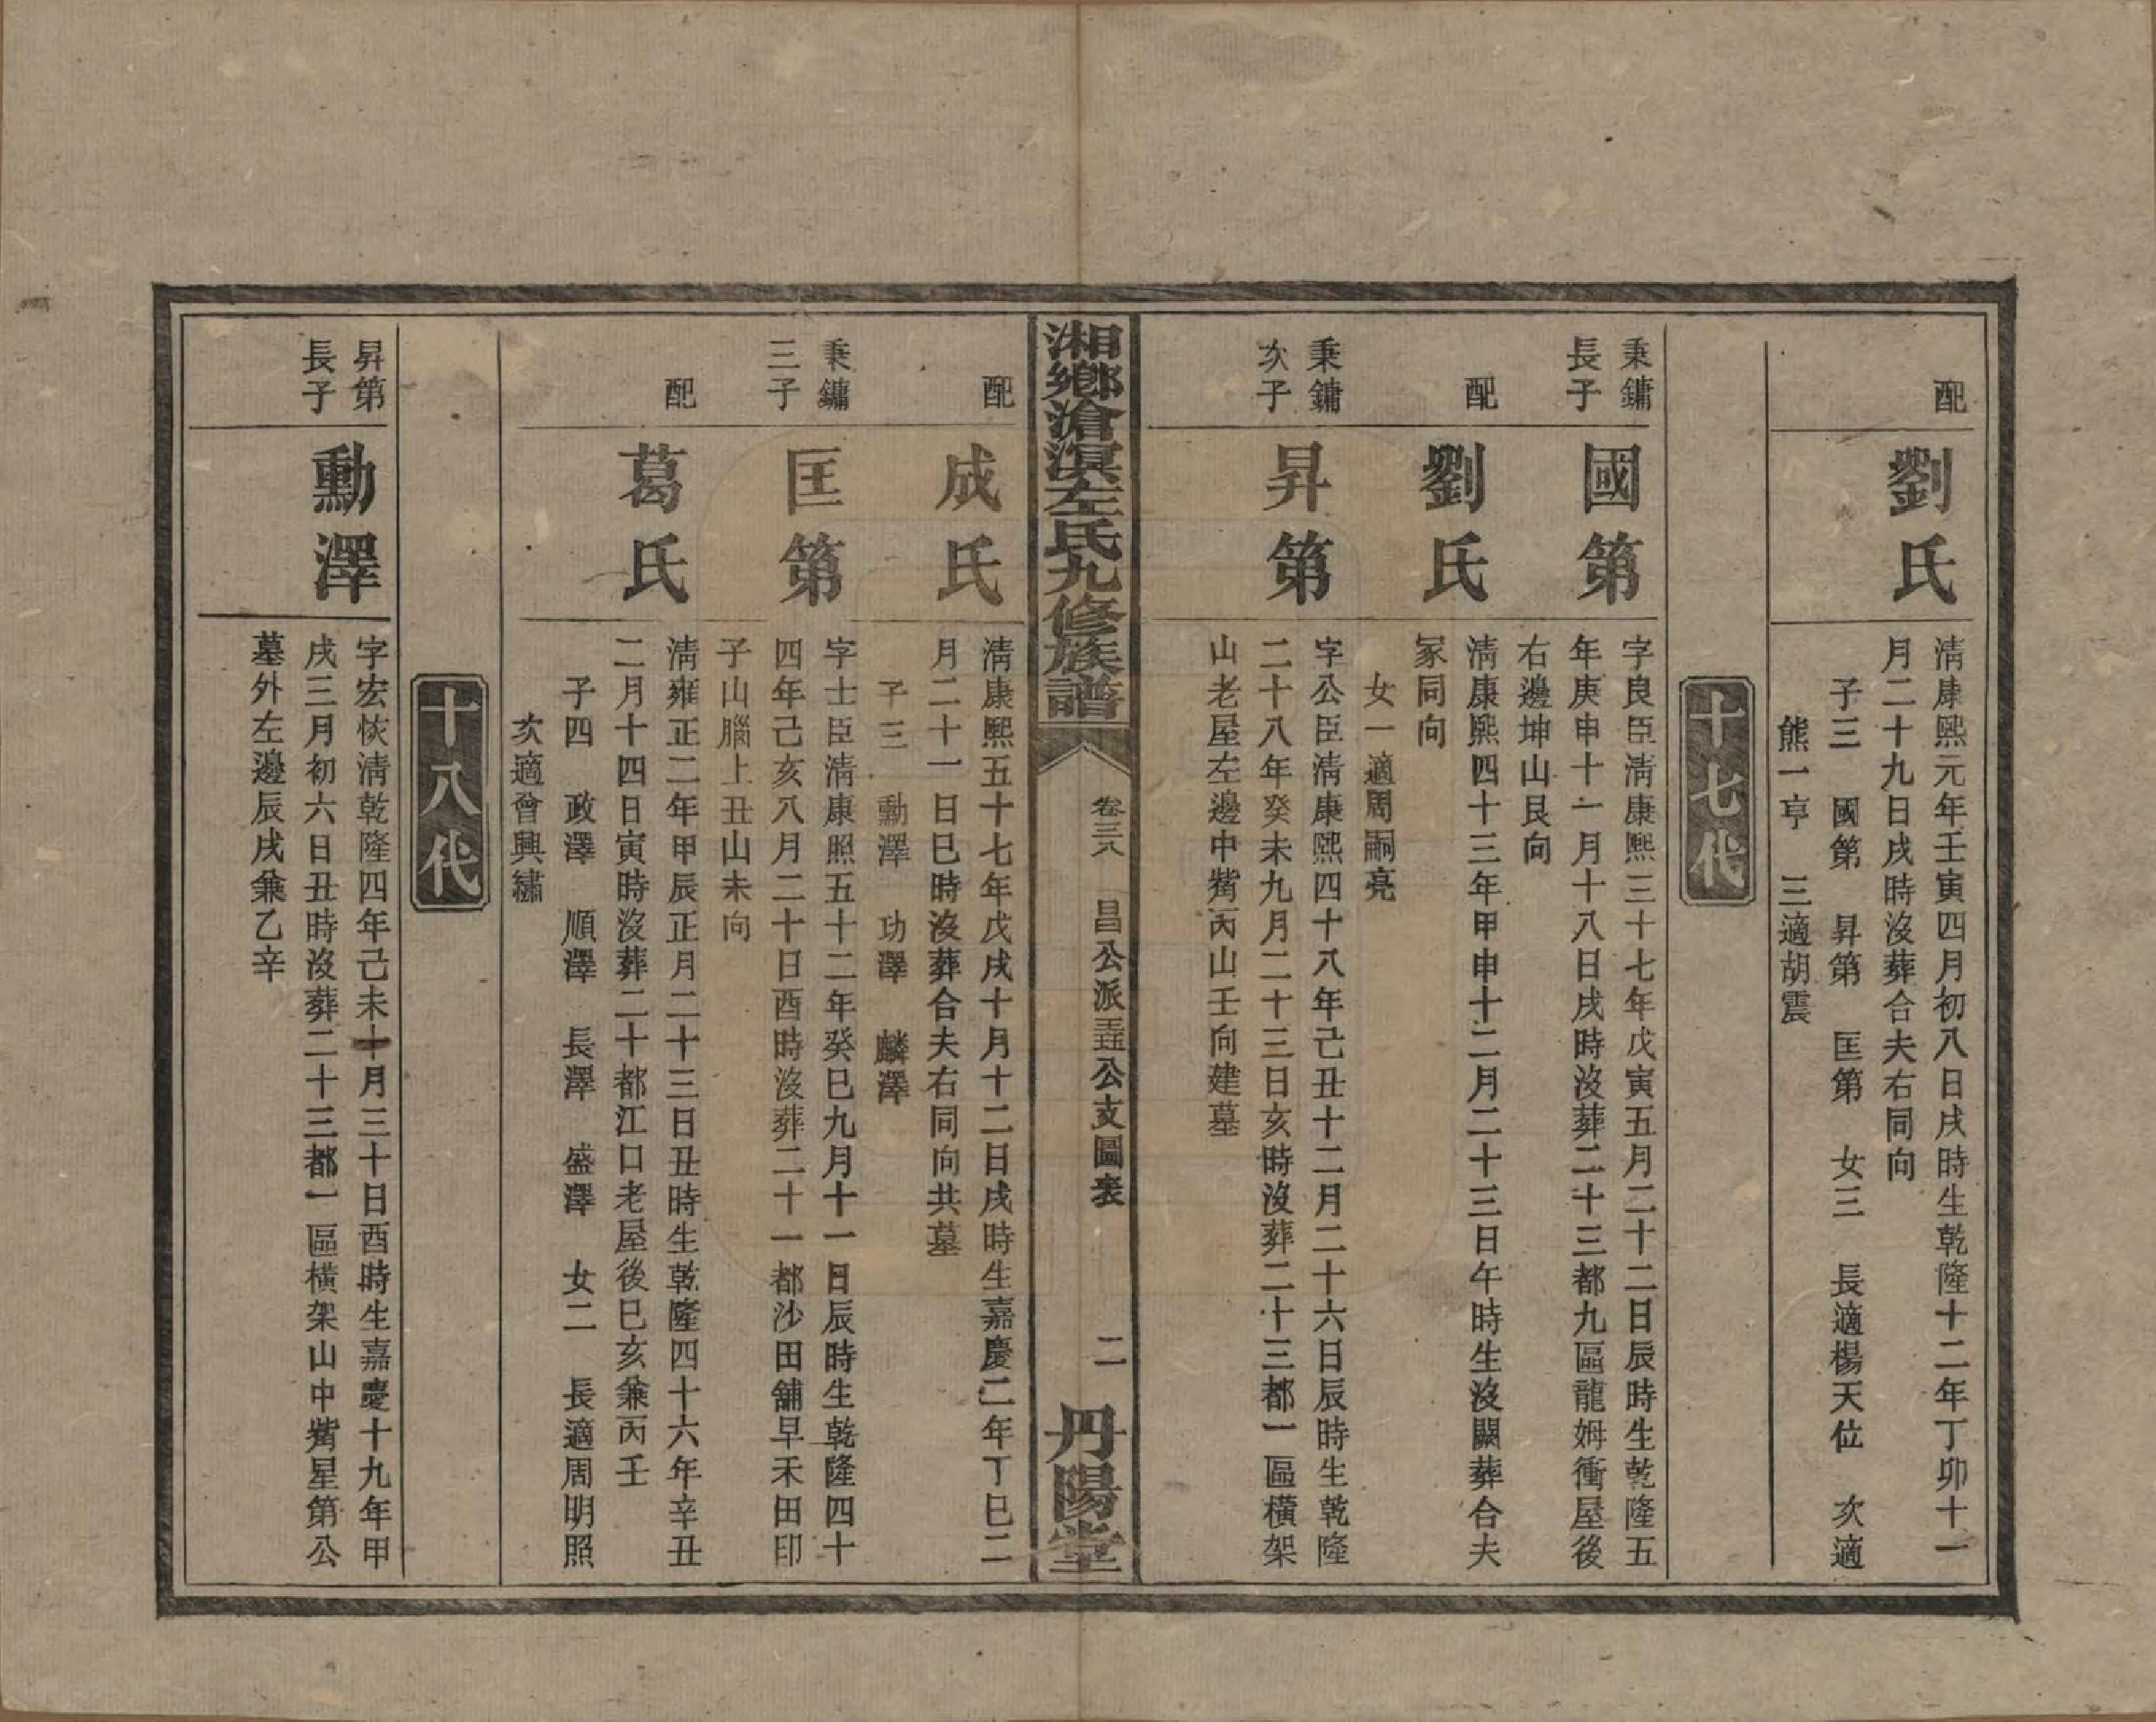 配
劉氏
清康熙元年壬寅四月初八日戌時生乾隆十二年丁卯十一
月二十九日戌時沒葬合夫右同向
子三　國第　昇第　匡第　女三　長適楊天位　次適
熊一亨　三適胡震
十七代
秉鏞
長子
國第
字良臣清康熙三十七年戊寅五月二十二日辰時生乾隆五
年庚申十一月十八日戌時沒葬二十三都九區龍姆衝屋後
右邊坤山艮向
配
劉氏
清康熙四十三年甲申十二月二十三日午時生沒闕葬合夫
冢同向
女一適周嗣亮
秉鏞
次子
昇第
字公臣清康熙四十八年己丑十二月二十六日辰時生乾隆
二十八年癸未九月二十三日亥時沒葬二十三都一區橫架
山老屋左邊中嘴丙山壬向建墓
湘鄉滄溟左氏九修族譜
卷三八　昌公派　公支圖表　二　丹陽堂
配
成氏
清康熙五十七年戊戌十月十二日戌時生嘉慶二年丁巳二
月二十一日巳時沒葬合夫右同向共墓
子三　勳澤　功澤　麟澤
秉鏞
三子
匡第
字士臣清康照五十二年癸巳九月十一日辰時生乾隆四十
四年己亥八月二十日酉時沒葬二十一都沙田舖早禾田印
子山腦上丑山未向
配
葛氏
清雍正二年甲辰正月二十三日丑時生乾隆四十六年辛丑
二月十四日寅時沒葬二十都江口老屋後巳亥兼丙壬
子四　政澤　順澤　長澤　盛澤　女二　長適周明照
次適曾興繡
十八代
昇第
長子
勳澤
字宏恢清乾隆四年己未十月三十日酉時生嘉慶十九年甲
戌三月初六日丑時沒葬二十三都一區橫架山中嘴星第公
墓外左邊辰戌兼乙辛